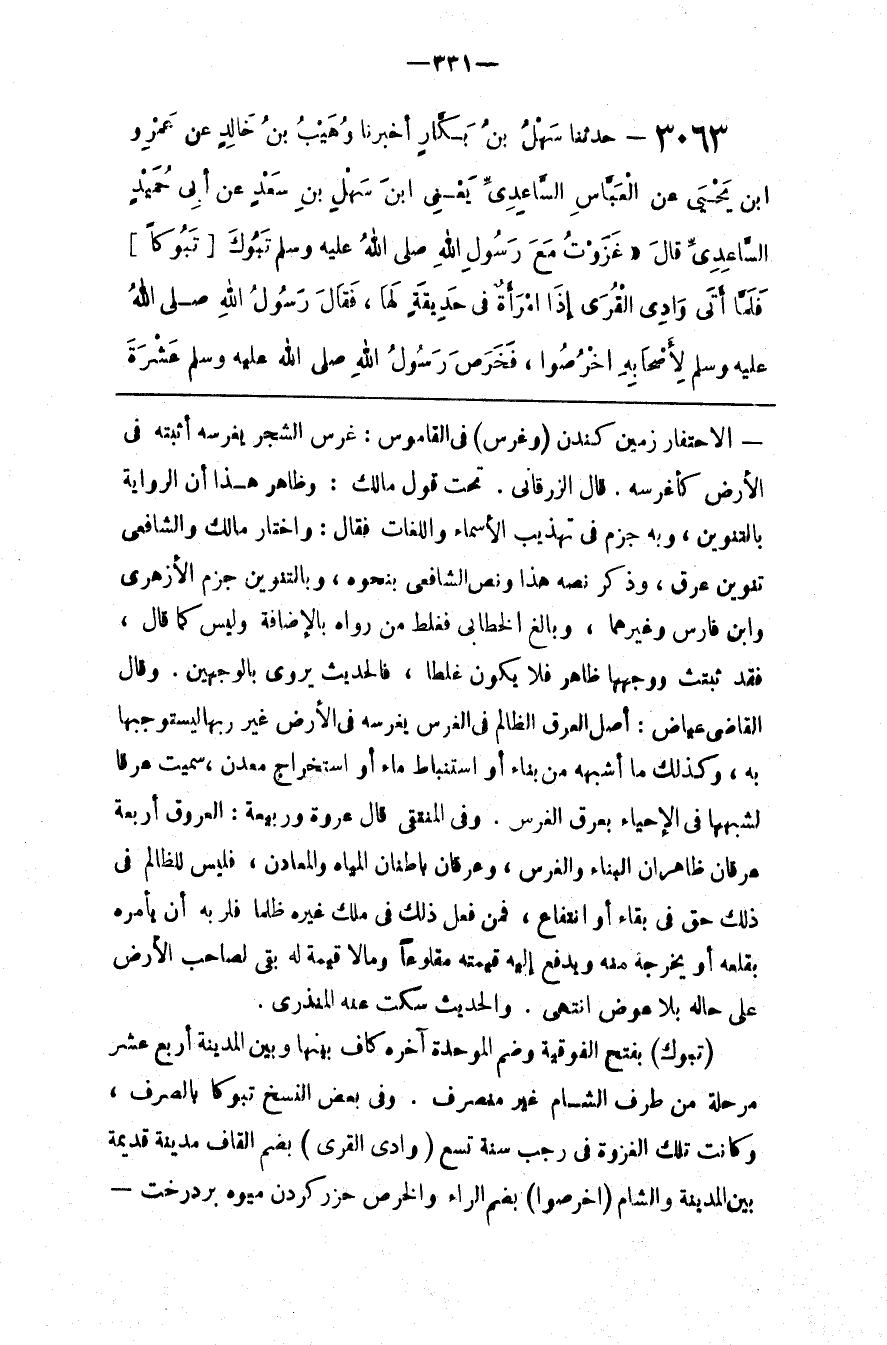 —٣٣١—
٣٠٦٣ — حدثنا سَهْلُ بنُ بَكَّارٍ أخبرنا وُهَيْبُ بنُ خَالِدٍ عن عَمْرِو
ابن يَحْيَى عن الْعَبَّاسِ السَّاعِدِىِّ يَعْنِى ابنَ سَهْلِ بنِ سَعْدٍ عن أبى حُمَيْدٍ
السَّاعِدِىِّ قالَ « غَزَوْتُ مَعَ رَسُولِ اللهِ صلى اللهُ عليه وسلم تَبُوكَ [ تَبُوكاً ]
فَلَمَّا أَتَى وَادِى الْقُرَى إِذَا امْرَأَةٌ فى حَدِيقَةٍ لَهَا ، فَقَالَ رَسُولُ اللهِ صلى اللهُ
عليه وسلم لِأَصْحَابِهِ اخْرُصُوا ، فَخَرَصَ رَسُولُ اللهِ صلى الله عليه وسلم عَشْرَةَ
— الاحتفار زمين كندن (وغرس) فى القاموس : غرس الشجر يغرسه أثبته فى
الأرض كأغرسه . قال الزرقانى . تحت قول مالك : وظاهر هذا أن الرواية
بالتنوين ، وبه جزم فى تهذيب الأسماء واللغات فقال : واختار مالك والشافعى
تنوين عرق ، وذكر نصه هذا ونص الشافعى بنحوه ، وبالتنوين جزم الأزهرى
وابن فارس وغيرهما ، وبالغ الخطابى فغلط من رواه بالإضافة وليس كما قال ،
فقد ثبتت ووجهها ظاهر فلا يكون غلطا ، فالحديث يروى بالوجهين . وقال
القاضى عياض : أصل العرق الظالم فى الغرس يغرسه فى الأرض غير ربها ليستوجبها
به ، وكذلك ما أشبهه من بناء أو استنباط ماء أو استخراج معدن ، سميت عرقا
لشبهها فى الإحياء بعرق الغرس . وفى المنتقى قال عروة وربيعة : العروق أربعة
عرقان ظاهران البناء والغرس ، وعرقان باطنان المياه والمعادن ، فليس للظالم فى
ذلك حق فى بقاء أو انتفاع ، فمن فعل ذلك فى ملك غيره ظلما فلربه أن يأمره
بقلعه أو يخرجه منه ويدفع إليه قيمته مقلوعاً ومالا قيمة له بقى لصاحب الأرض
على حاله بلا عوض انتهى . والحديث سكت عنه المنذرى .
(تبوك) بفتح الفوقية وضم الموحدة آخره كاف بينها وبين المدينة أربع عشر
مرحلة من طرف الشام غير منصرف . وفى بعض النسخ تبوكا بالصرف ،
وكانت تلك الغزوة فى رجب سنة تسع ( وادى القرى ) بضم القاف مدينة قديمة
بين المدينة والشام (اخرصوا) بضم الراء والخرص حزر كردن ميوه بر درخت —